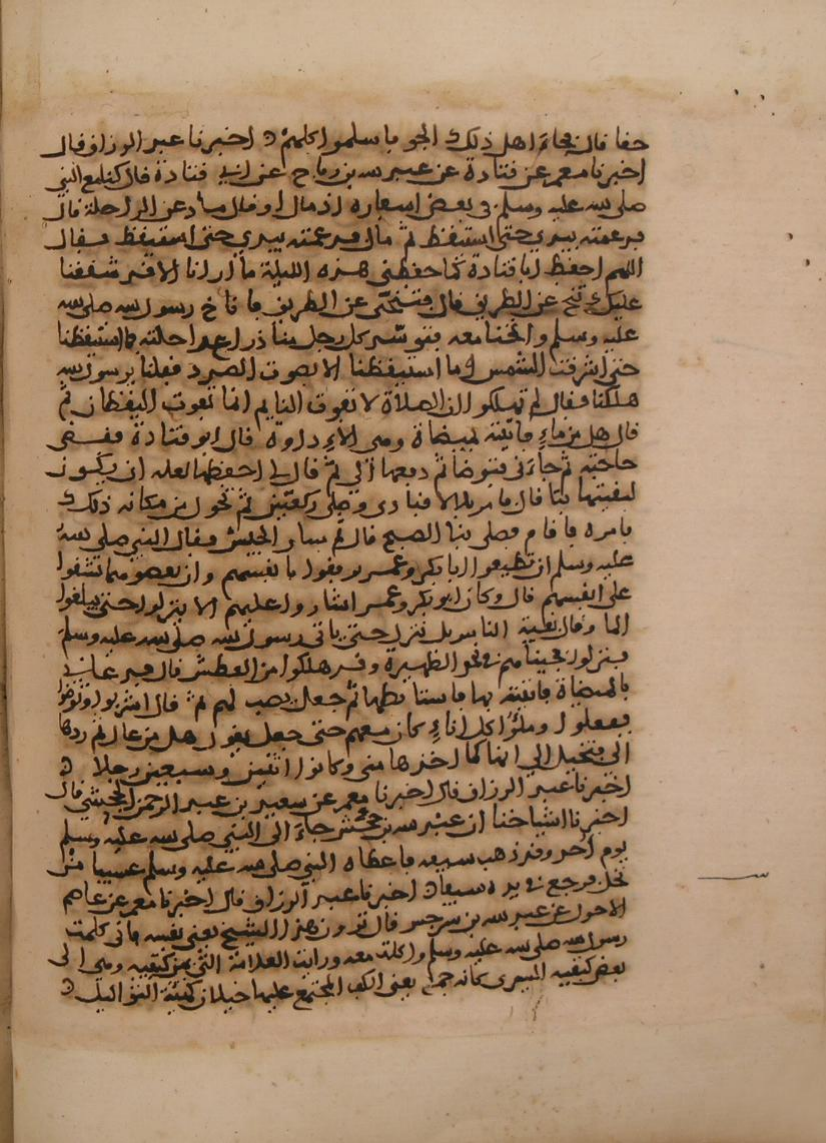 حقا قال فجاء اهل ذلك الجو فاسلموا كلهم ه اخبرنا عبد الرزاق قال
اخبرنا معمر عن قتادة عن عبد الله بن رباح عن ابي قتادة قال كنا مع النبي
صلى الله عليه وسلم في بعض اسفاره اذ مال او قال ماد عن الراحلة قال
فدعمته بيدي حتى استيقظ ثم مال فدعمته بيدي حتى استيقظ فقال
اللهم احفظ ابا قتادة كما حفظني هذه الليلة ما ارانا الا قد شققنا
عليك تنح عن الطريق قال فتنحى عن الطريق فاناخ رسول الله صلى الله
عليه وسلم وانخنا معه فتوسد كل رجل منا ذراع راحلته فما استيقظنا
حتى اشرقت الشمس وما استيقظنا الا بصوت الصرد فقلنا يرسول الله
هلكنا فقال لم تهلكوا ان الصلاة لا تفوت النايم انما تفوت اليقظان ثم
قال هل من ماء فاتيته بميضاة وهي الاداوة قال ابو قتادة فقضى
حاجته ثم جاءني فتوضا ثم دفعها الي ثم قال لي احفظها لعله ان يكون
لبقيتها نبا قال فامر بلالا فنادى وصلى ركعتين ثم تحول من مكانه ذلك
فامره فاقام فصلى بنا الصبح قال ثم سار الجيش فقال النبي صلى الله
عليه وسلم ان تطيعوا ابا بكر وعمر يرفقوا بانفسهم وان يعصوهما تشقوا
على انفسهم قال وكان ابو بكر وعمر اشاروا عليهم الا ينزلوا حتى يبلغوا
الما وقال بقية الناس بل ننزل حتى ياتي رسول الله صلى الله عليه وسلم
فنزلوا فجيناهم في نحو الظهيرة وقد هلكوا من العطش قال فدعاني
بالميضاة فاتيته بها فاستابطها ثم جعل يصب لهم ثم قال اشربوا وتوضوا
ففعلوا وملؤا كل اناء كان معهم حتى جعل يقول هل من عال ثم ردها
الي فتخيل الي انها كما اخذها مني وكانوا اثنين وسبعين رجلا ه
اخبرنا عبد الرزاق قال اخبرنا معمر عن سعيد بن عبد الرحمن الجحشي قال
اخبرنا اشياخنا ان عبد الله بن جحش جاء الى النبي صلى الله عليه وسلم
يوم احد وقد ذهب سيفه فاعطاه النبي صلى الله عليه وسلم عسيبا من
نخل فرجع في يده سيفا ه اخبرنا عبد الرزاق قال اخبرنا معمر عن عاصم
الاحول عن عبد الله بن سرجس قال ترون هذا الشيخ يعني نفسه فاني كلمت
رسول الله صلى الله عليه وسلم واكلت معه ورايت العلامة التي بين كتفيه وهي الى
نغض كتفيه اليسرى كانه جمع يعني الكف المجتمع عليها خيلان كهيئة الثواليل ه